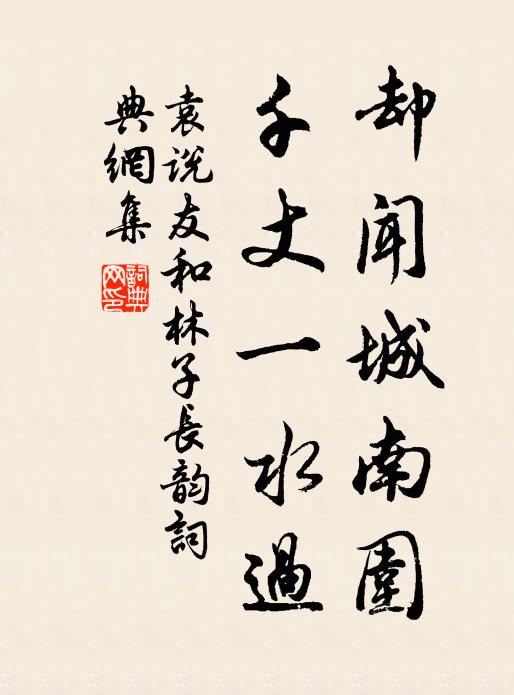 却闻城南圍
千丈一水過
袁说友和林子長韵詞
典網集
詞典网印